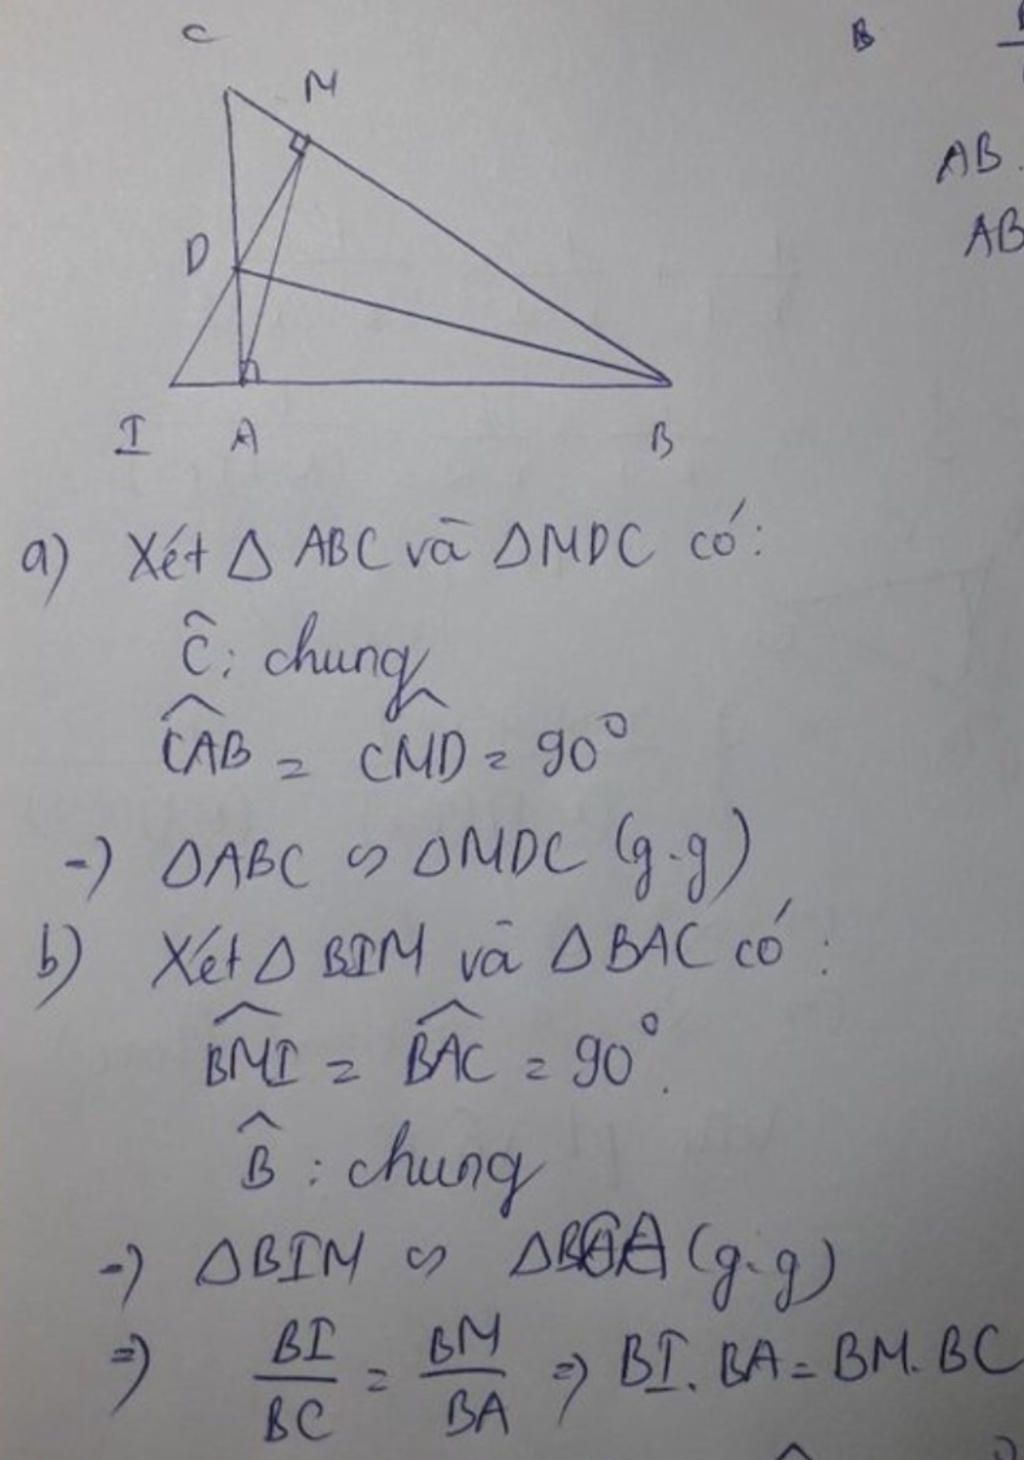 C
M
B
AB.
AB
D
I A B
a) Xét Δ ABC và ΔMDC có:
Ĉ: chung
\widehat{CAB} = \widehat{CMD} = 90°
-) ΔABC ∽ ΔMDC (g.g)
b) Xét Δ BIM và ΔBAC có:
\widehat{BMI} = \widehat{BAC} = 90°.
B̂ : chung
-) ΔBIM ∽ ΔBCA (g.g)
=) BI/BC = BM/BA =) BI. BA = BM. BC